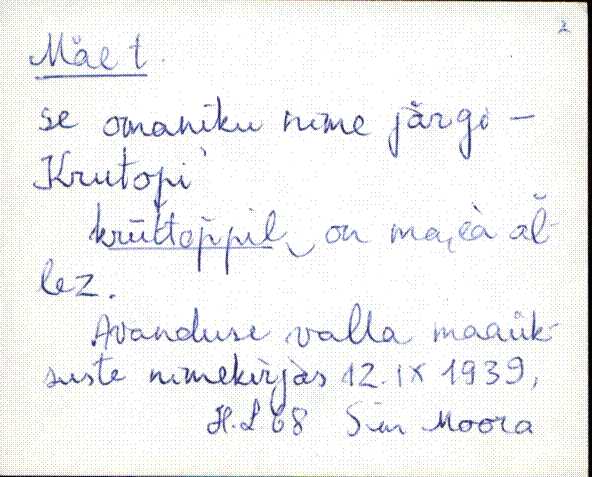 2
Mäe t.
se omaniku nime järgi –
Krutopi
krūttoppil, on
lez.
Avanduse valla maaük-
suste nimekirjas 12.IX 1939,
H.L 68 Sim Moora